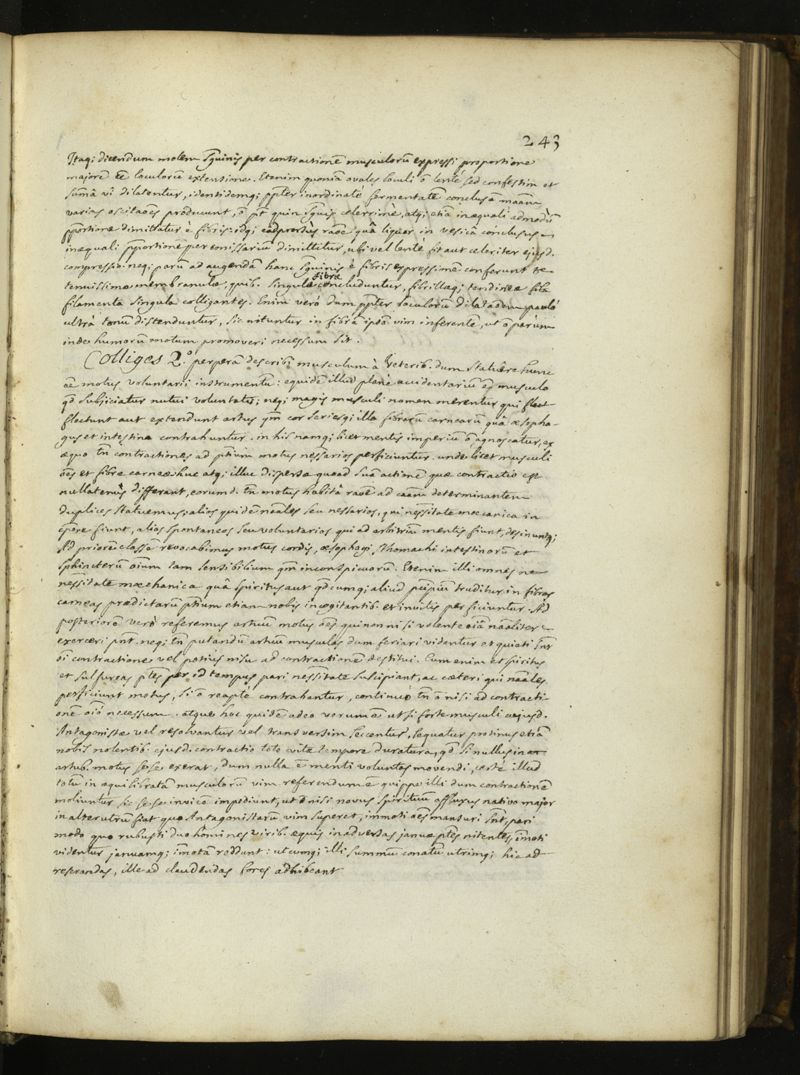 243
Itaq; dicendum molem sguinis per contractionē musculorū expressi proportione
majorē ēē loculorū extensione. Etenim quoniā ovales loculi ō lentè sed confestim et
sumâ vi dilatentur, identidemq; ppter inordinatē fermentatē conclusæ
varias oscilaōes producunt, ō pt quin sguis celerrimè, atq; etiā inæquali admodū
pportione dimittatur è fibris: idq; eadprorsùs raōe quâ liquor in vesicâ conclusus
inæquali pportione per emissariū dimittitur, ubi vel lentè fit aut celeriter ejusd.
compressio. neq; parū ad augendā hanc sguinis è fibris expressionē conferunt
tenuissimæ membranulæ, quib. singulæ fibræ concluduntur, fibrillæq; tendineæ
filamenta singula colligantes. Enim verò dum ppter loculorum dilataōem paulò
ultrà tonū distenduntur, sic nituntur in fibrā ipsā vim inferente, ut ō parùm
inde humorū motum promoveri necessum sit.
Colliges 2.º perperā describi musculum à Veterib. dum statuêre hunc
ēē motus voluntarii instrumentū: equidē illud planè accidentariū ē musculo
qd subjiciatur nutui voluntatis; neq; magis musculi nomen merentur qui
flectunt aut extendunt artus qm cor seriesq; illa fibrarū carnearū quâ æsopha-
gus et intestina contrahuntur. in his namq; licet mentis imperiū ō agnoscatur, ex
æquo tn contractiones ad ptium motus nessarios perficiuntur. unde licet musculi
ōēs et fibræ carneæ huc atq; illuc dispersæ quoad suā actionē quæ contractio est
nullatenùs differant, eorumd. tn motus habitâ raōe ad caam determinantem
duplices statuemus; alios quidē nāales seu nessarios, qui nessitate mecanica in
cpore fiunt, alios spontaneos seu voluntarios qui ad arbitriū mentis fiunt, desinuntq;
Ad priorē classē revocabimus motus cordis, æsophagi, stomachi intestinorū et
sphincterū oium tam sensibilium qm inconspicuorū. Etenim illi omnes
nessitate mechanica quâ spiritus aut qdcumq; aliud ppium truditur in fibras
carneas prædictarū ptium etiam nobis incogitantib. et invitis perficiuntur. Ad
posteriorē verò referemus artuum motus ōēs qui non nisi volente aiâ nāaliter
exerceri pnt. neq; tn putandū artuū musculos dum feriari videntur et quieti snt
oī contractione vel potius nisu ad contractionē destitui. Cum enim et spiritus
et sulfureas ptes per id tempus pari nessitate suscipiant, ac cæteri qui nāales
perficiunt motus, si ō reapte contrahantur, continuò tn ō nisi ad contracti-
onē oiō necessum. atque hoc quidē adeo verum ē ut si forte musculi cujusd.
Antagonistæ vel resolvantur vel transversim secentur, sequatur protinus etiā
nobis nolentib. ejusd. contractio toto vitæ tempore duratura, qd si nullus in
artub. motus sese exerat, dum nulla ē menti voluntas movendi, certè illud
totū in æquilibratā musculorū vim referendum ē quippe illi dum contractionē
moliuntur sic sese invicē impediunt, ut ō nisi novus spirituum affluxus nativo major
in alterutrū fiat quo Antagonistarū vim superet, immoti ōēs mansuri snt, pari
modo quo robusti duo homines virib. æquis in adversas januæ ptes nitentes, imoti
videntur januamq; imotā reddunt: utcunq; illi summū conatū utrimq; hic ad
reserandas, ille ad claudendas fores adhibeant